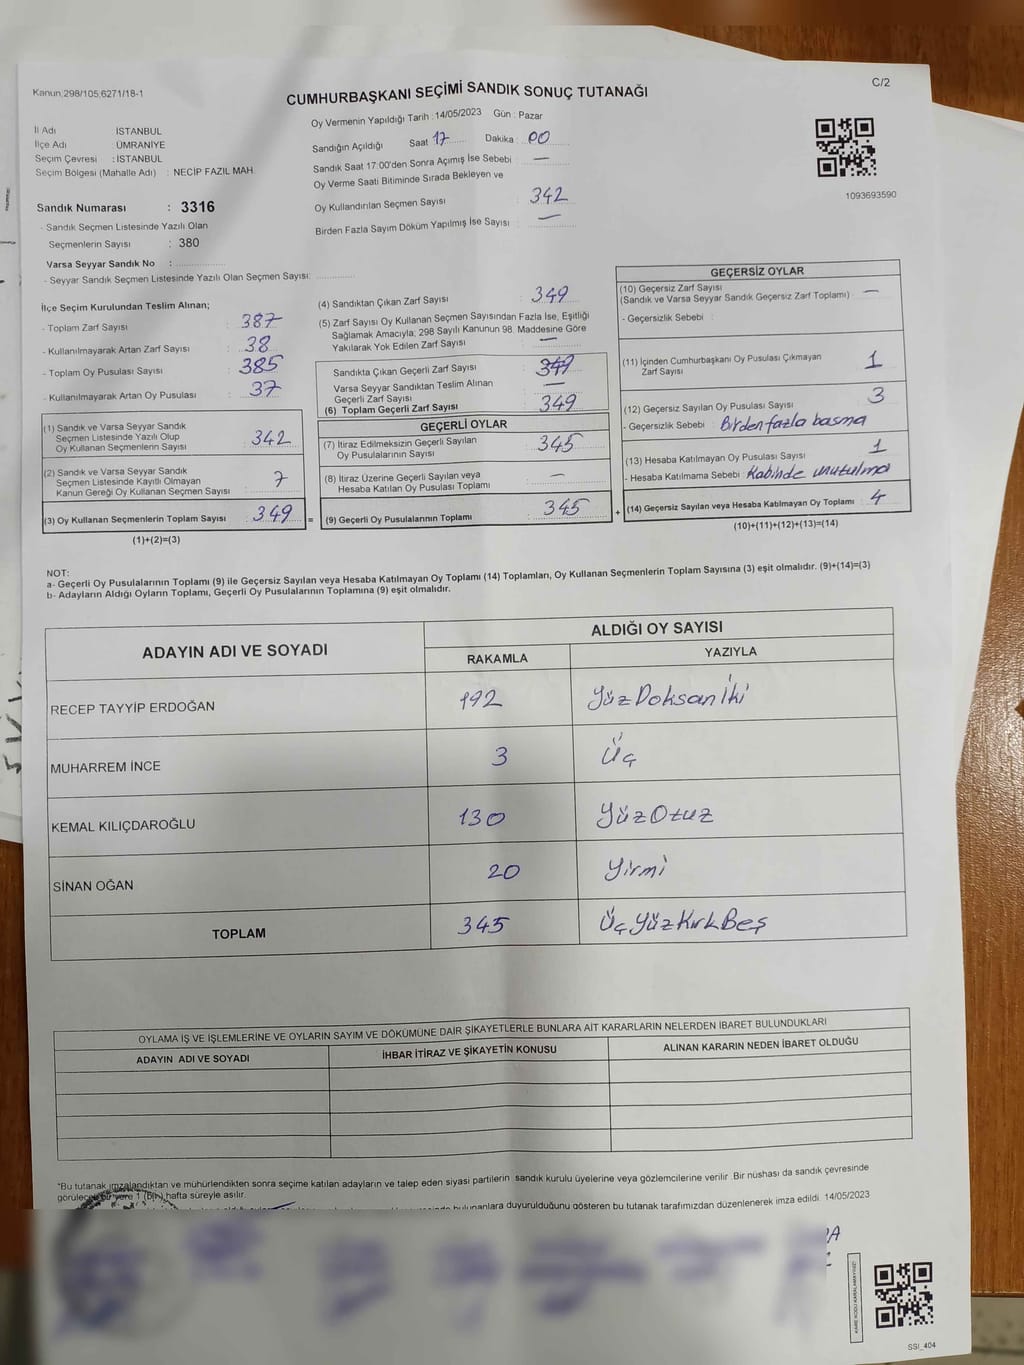 Kanun;298/105;6271/18-1
C/2
CUMHURBAŞKANI SEÇİMİ SANDIK SONUÇ TUTANAĞI
İl Adı İSTANBUL
İlçe Adı : ÜMRANİYE
Seçim Çevresi : İSTANBUL
Seçim Bölgesi (Mahalle Adı) : NECİP FAZIL MAH.
Sandık Numarası : 3316
- Sandık Seçmen Listesinde Yazılı Olan
Seçmenlerin Sayısı : 380
Varsa Seyyar Sandık No :
- Seyyar Sandık Seçmen Listesinde Yazılı Olan Seçmen Sayısı:
Oy Vermenin Yapıldığı Tarih : 14/05/2023 Gün : Pazar
Sandığın Açıldığı Saat 17 Dakika : 00
Sandık Saat 17:00'den Sonra Açımış İse Sebebi : —
Oy Verme Saati Bitiminde Sırada Bekleyen ve
Oy Kullandırılan Seçmen Sayısı : 342
Birden Fazla Sayım Döküm Yapılmış İse Sayısı : —
1093693590
İlçe Seçim Kurulundan Teslim Alınan;
- Toplam Zarf Sayısı : 387
- Kullanılmayarak Artan Zarf Sayısı : 38
- Toplam Oy Pusulası Sayısı : 385
- Kullanılmayarak Artan Oy Pusulası : 37
(1) Sandık ve Varsa Seyyar Sandık
Seçmen Listesinde Yazılı Olup
Oy Kullanan Seçmenlerin Sayısı : 342
(2) Sandık ve Varsa Seyyar Sandık
Seçmen Listesinde Kayıtlı Olmayan
Kanun Gereği Oy Kullanan Seçmen Sayısı : 7
(3) Oy Kullanan Seçmenlerin Toplam Sayısı : 349
(1)+(2)=(3)
=
(4) Sandıktan Çıkan Zarf Sayısı : 349
(5) Zarf Sayısı Oy Kullanan Seçmen Sayısından Fazla İse, Eşitliği
Sağlamak Amacıyla; 298 Sayılı Kanunun 98. Maddesine Göre
Yakılarak Yok Edilen Zarf Sayısı : —
Sandıkta Çıkan Geçerli Zarf Sayısı : 349
Varsa Seyyar Sandıktan Teslim Alınan
Geçerli Zarf Sayısı : —
(6) Toplam Geçerli Zarf Sayısı : 349
GEÇERLİ OYLAR
(7) İtiraz Edilmeksizin Geçerli Sayılan
Oy Pusulalarının Sayısı : 345
(8) İtiraz Üzerine Geçerli Sayılan veya
Hesaba Katılan Oy Pusulası Toplamı : —
(9) Geçerli Oy Pusulalarının Toplamı : 345
+
GEÇERSİZ OYLAR
(10) Geçersiz Zarf Sayısı
(Sandık ve Varsa Seyyar Sandık Geçersiz Zarf Toplamı) : —
- Geçersizlik Sebebi :
(11) İçinden Cumhurbaşkanı Oy Pusulası Çıkmayan
Zarf Sayısı : 1
(12) Geçersiz Sayılan Oy Pusulası Sayısı : 3
- Geçersizlik Sebebi : Birden fazla basma
(13) Hesaba Katılmayan Oy Pusulası Sayısı : 1
- Hesaba Katılmama Sebebi Kabinde unutulma
(14) Geçersiz Sayılan veya Hesaba Katılmayan Oy Toplamı : 4
(10)+(11)+(12)+(13)=(14)
NOT:
a- Geçerli Oy Pusulalarının Toplamı (9) ile Geçersiz Sayılan veya Hesaba Katılmayan Oy Toplamı (14) Toplamları, Oy Kullanan Seçmenlerin Toplam Sayısına (3) eşit olmalıdır. (9)+(14)=(3)
b- Adayların Aldığı Oyların Toplamı, Geçerli Oy Pusulalarının Toplamına (9) eşit olmalıdır.
ADAYIN ADI VE SOYADI
ALDIĞI OY SAYISI
RAKAMLA YAZIYLA
RECEP TAYYİP ERDOĞAN 192 YüzDoksanİki
MUHARREM İNCE 3 Üç
KEMAL KILIÇDAROĞLU 130 YüzOtuz
SİNAN OĞAN 20 Yirmi
TOPLAM 345 ÜçYüzKırkBeş
OYLAMA İŞ VE İŞLEMLERİNE VE OYLARIN SAYIM VE DÖKÜMÜNE DAİR ŞİKAYETLERLE BUNLARA AİT KARARLARIN NELERDEN İBARET BULUNDUKLARI
ADAYIN ADI VE SOYADI İHBAR İTİRAZ VE ŞİKAYETİN KONUSU ALINAN KARARIN NEDEN İBARET OLDUĞU
"Bu tutanak imzalandıktan ve mühürlendikten sonra seçime katılan adayların ve talep eden siyasi partilerin sandık kurulu üyelerine veya gözlemcilerine verilir. Bir nüshası da sandık çevresinde
görülecek bir yere 1 (bir) hafta süreyle asılır.
bulunanlara duyurulduğunu gösteren bu tutanak tarafımızdan düzenlenerek imza edildi. 14/05/2023
KARE KODU KARALAMAYINIZ!
SSI_404